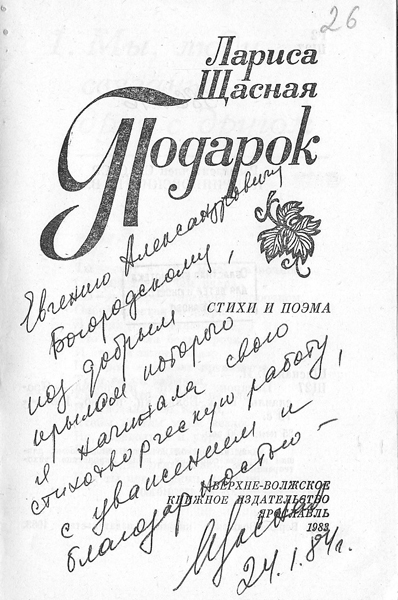 26
Лариса
Щасная
Подарок
Евгению Александровичу
Богородскому,
под добрым
крылом которого
я начинала свою
стихотворческую работу,
с уважением и
благодарностью –
Щасная
24.1.84г.
СТИХИ И ПОЭМА
ВЕРХНЕ-ВОЛЖСКОЕ
КНИЖНОЕ ИЗДАТЕЛЬСТВО
ЯРОСЛАВЛЬ
1983